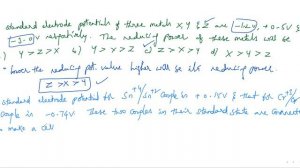 standard electrode potentials of three metals X Y & Z are -1.2 V + 0.5 V &
-3.0 V respectively. The reducing power of these metals will be
Y > Z > X b) Y > X > Z c) Z > X > Y d) X > Y > Z
lower the reducing pot. value higher will be its reducing power.
Z > X > Y
standard electrode potential for Sn+4/Sn+2 couple is + 0.15 V & that for Cr+3/Cr
couple is -0.74 V These two couples in their standard state are connected
to make a cell